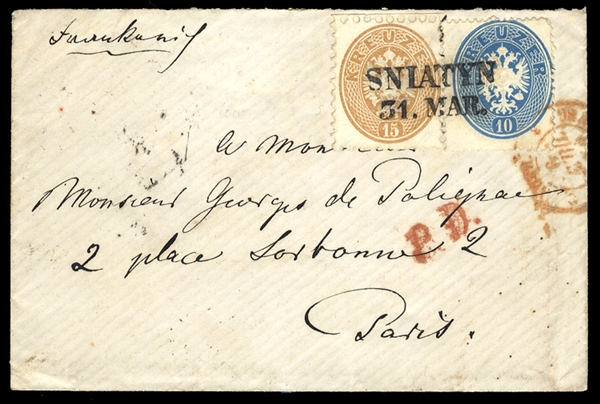 KREUZER
15
KREUZER
10
SNIATYN
31. MAR.
A Monsieur
Monsieur Georges de Polignac
P.D.
2 place Sorbonne 2
Paris.